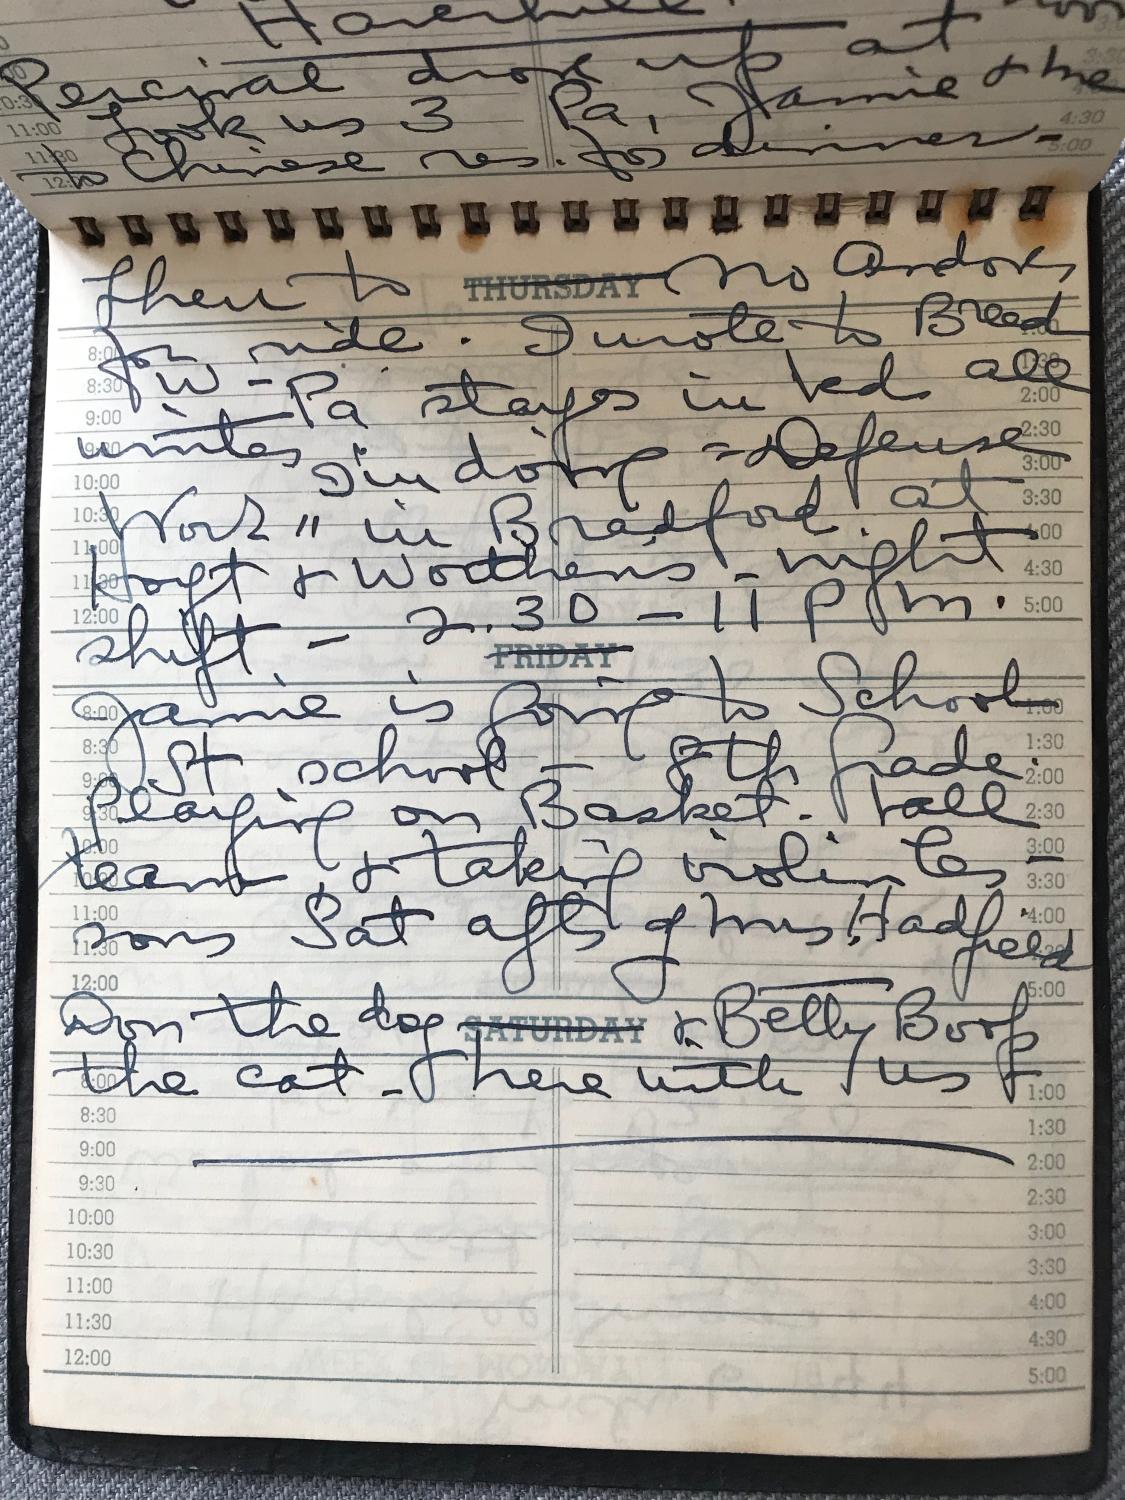 Haverhill.
Percival drove up at noon
took us 3 Pa, Jamie & me
to Chinese res. for dinner -
then to THURSDAY no Andover
for ride. I wrote to Bread
8:00
8:30 2:00
9:00 2:30
10:00 3:00
10:30 3:30
11:00 4:00
11:30 4:30
12:00 5:00
J W - Pa stays in bed all
winter I'm doing "Defense
Work" in Bradford at
Hoyt & Worthens - night
shift - 2.30 - 11 P.m.
FRIDAY
Jamie is going to School
St school - 8th grade.
Playing on Basket-ball
team & taking violin les-
sons Sat aft's of Mrs. Hadfield
8:00 1:00
8:30 1:30
9:00 2:00
9:30 2:30
3:00
3:30
11:00 4:00
11:30
12:00 5:00
Don the dog SATURDAY & Betty Boop
the cat - here with us
8:00 1:00
8:30 1:30
9:00 2:00
9:30 2:30
10:00 3:00
10:30 3:30
11:00 4:00
11:30 4:30
12:00 5:00